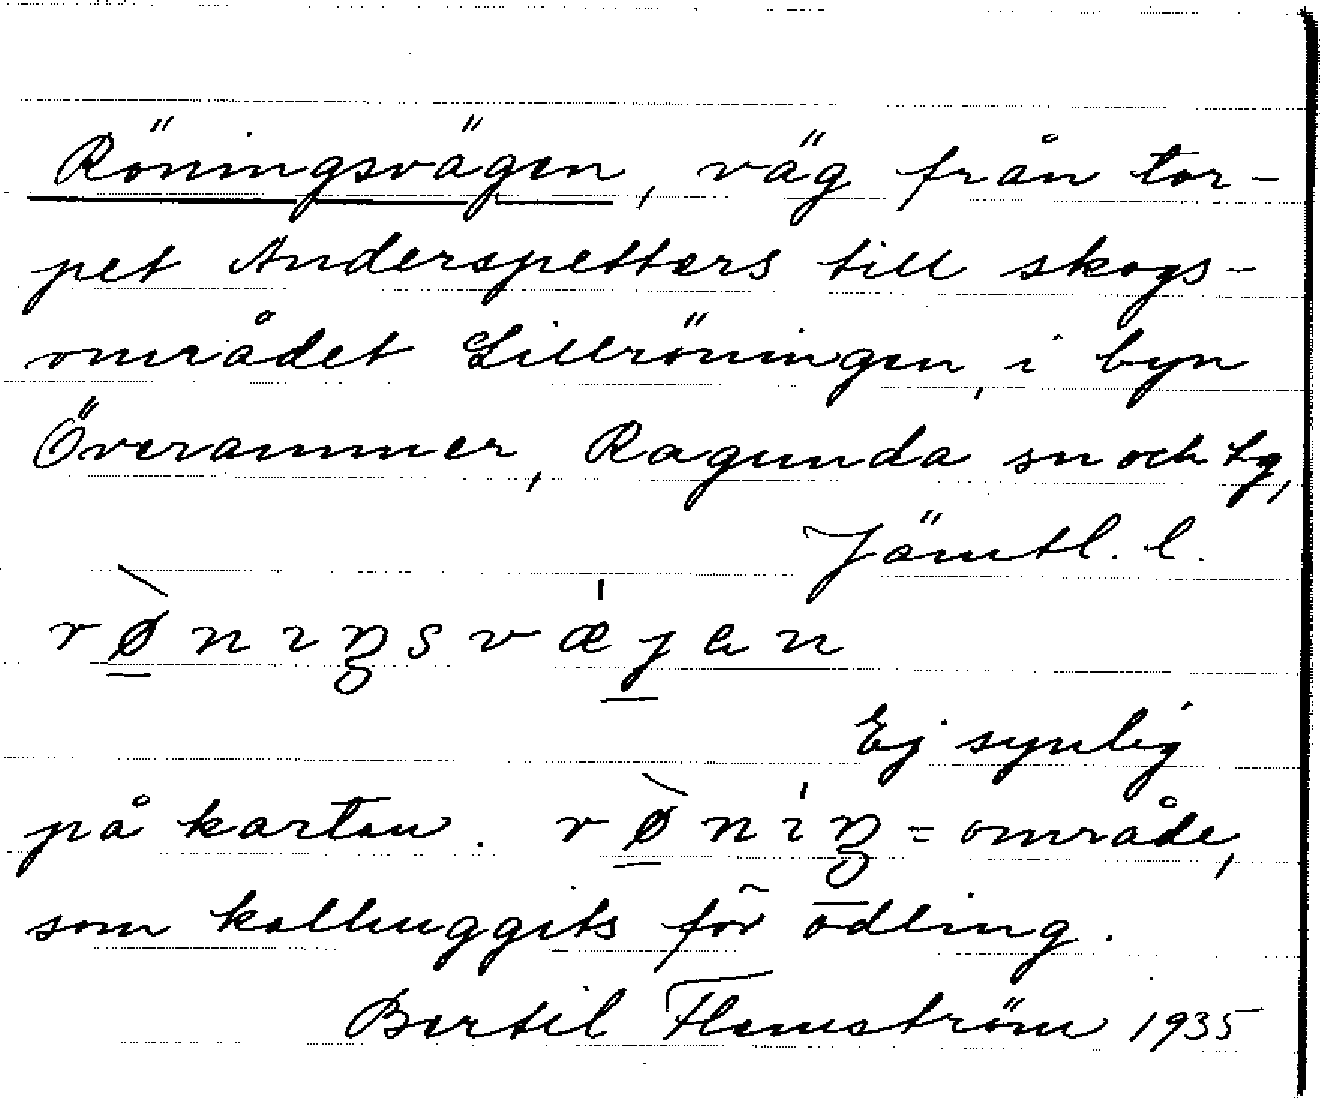 Röningsvägen, väg från tor-
pet Anderspetters till skogs-
området Lillröningen, i byn
Överammer, Ragunda sn och tg,
Jämtl. l.
rø̀nıŋsvǽjen
Ej synlig
på kartan. rø̀nıŋ = område,
som kalhuggits för odling.
Bertil Flemström 1935